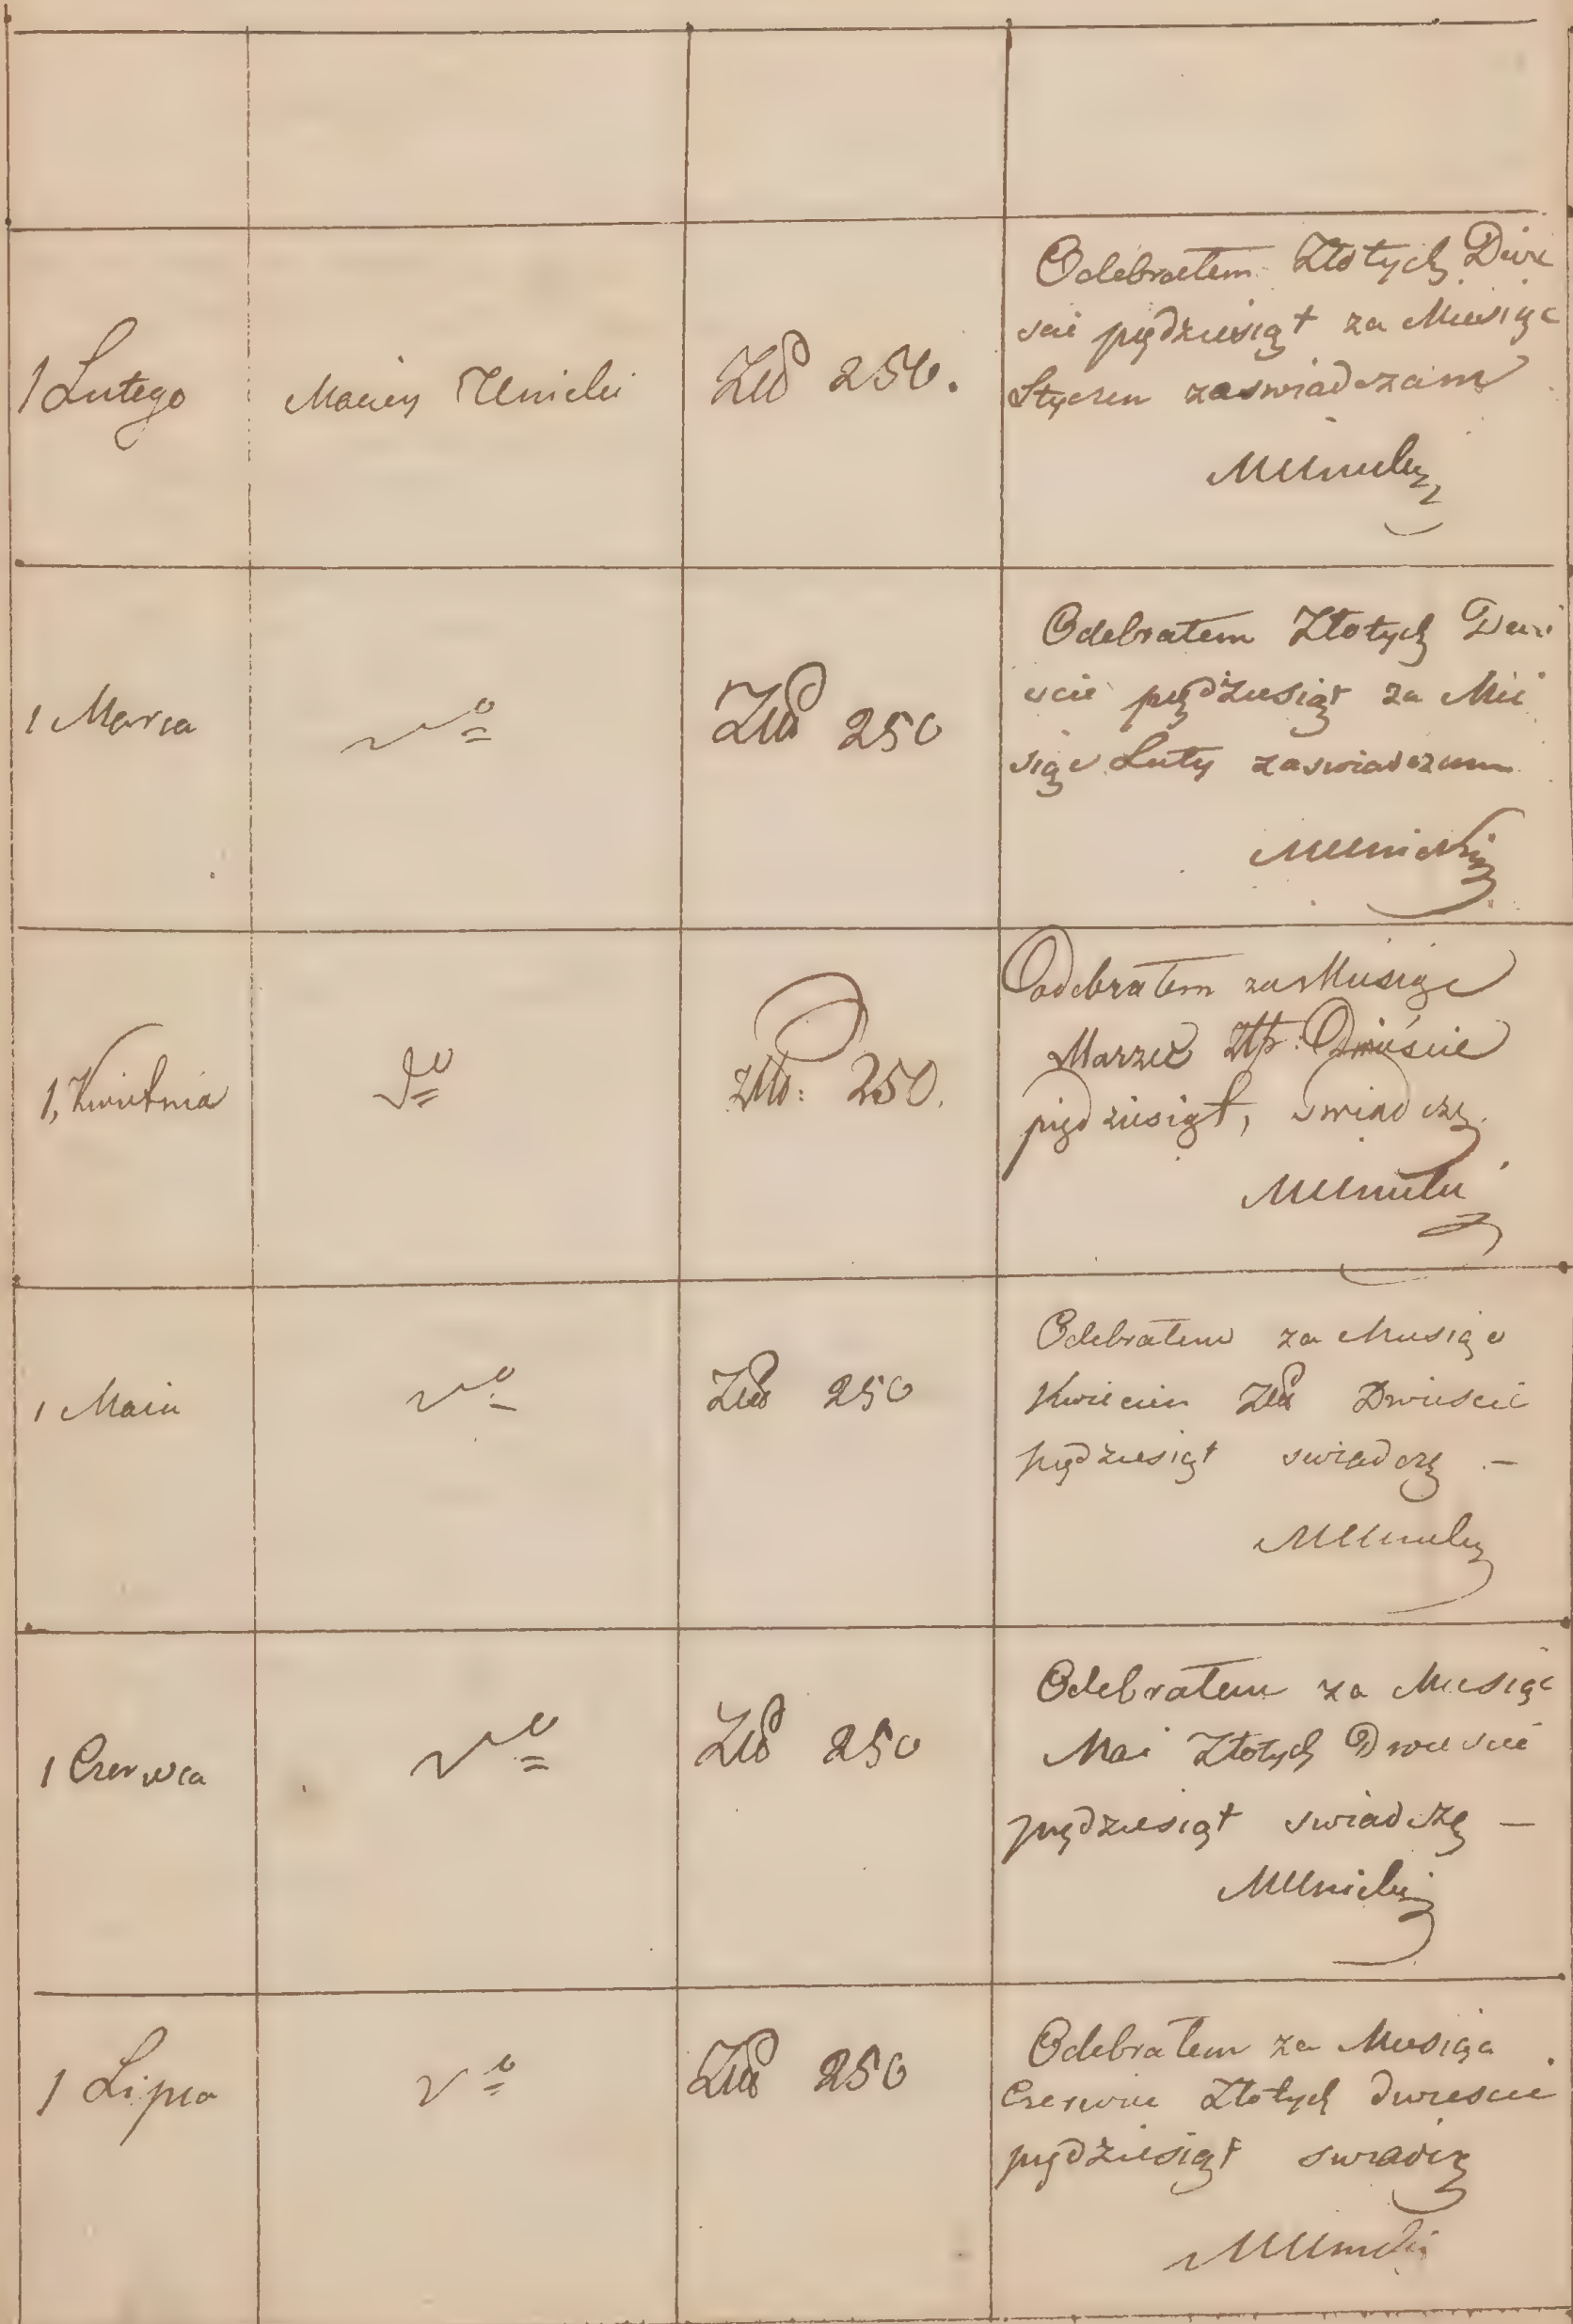 1 Lutego
Maciey Unicki
Złp 250.
Odebrałem Złotych Dwie
scie pędziesiąt za Miesiąc
Styczen zaswiadczam
MUnicki
1 Marca
do
Złp 250
Odebrałem Złotych Dwi
escie pędziesiąt za Mie
siąc Luty zaswiadczam
MUnicki
1, Kwietnia
do
złp: 250.
Oodebrałem za Miesiąc
Marzec Złp: Dwieście
pięd ziesiąt, swiadczę.
MUnicki
1 Maiu
do
Złp 250
Odebrałem za Miesiąc
Kwiecien Złp Dwiescie
pędziesiąt swiadczę —
MUnicki
1 Czerwca
do
Złp 250
Odebrałem za Miesiąc
Mai Złotych Dwiescie
pędziesiąt swiadczę —
MUnicki
1 Lipca
do
Złp 250
Odebrałem za Miesiąc
Czerwiec Złotych dwiescie
pędziesiąt swiadczę
MUnicki